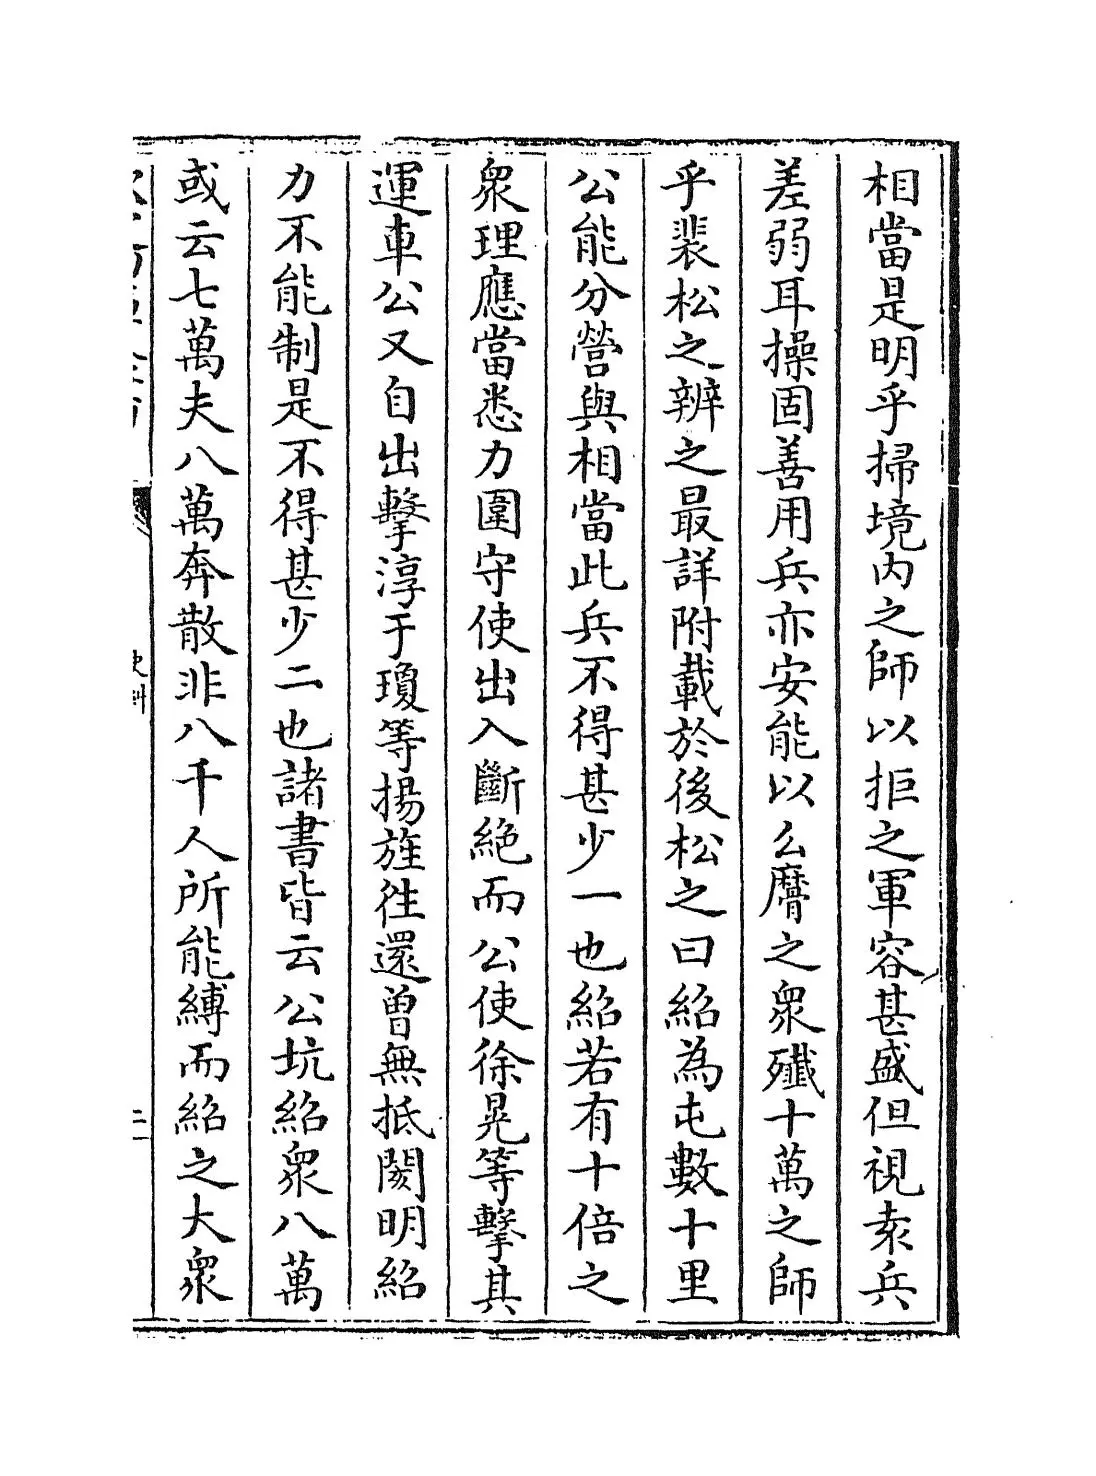 相當是明乎掃境内之師以拒之軍容甚盛但視袁兵
差弱耳操固善用兵亦安能以么麿之衆殱十萬之師
乎裴松之辨之最詳附載於後松之曰紹為屯數十里
公能分營與相當此兵不得甚少一也紹若有十倍之
衆理應當悉力圍守使出入斷絶而公使徐晃等擊其
運車公又自出擊淳于瓊等揚旌徃還曾無抵閡明紹
力不能制是不得甚少二也諸書皆云公坑紹衆八萬
或云七萬夫八萬奔散非八千人所能縛而紹之大衆